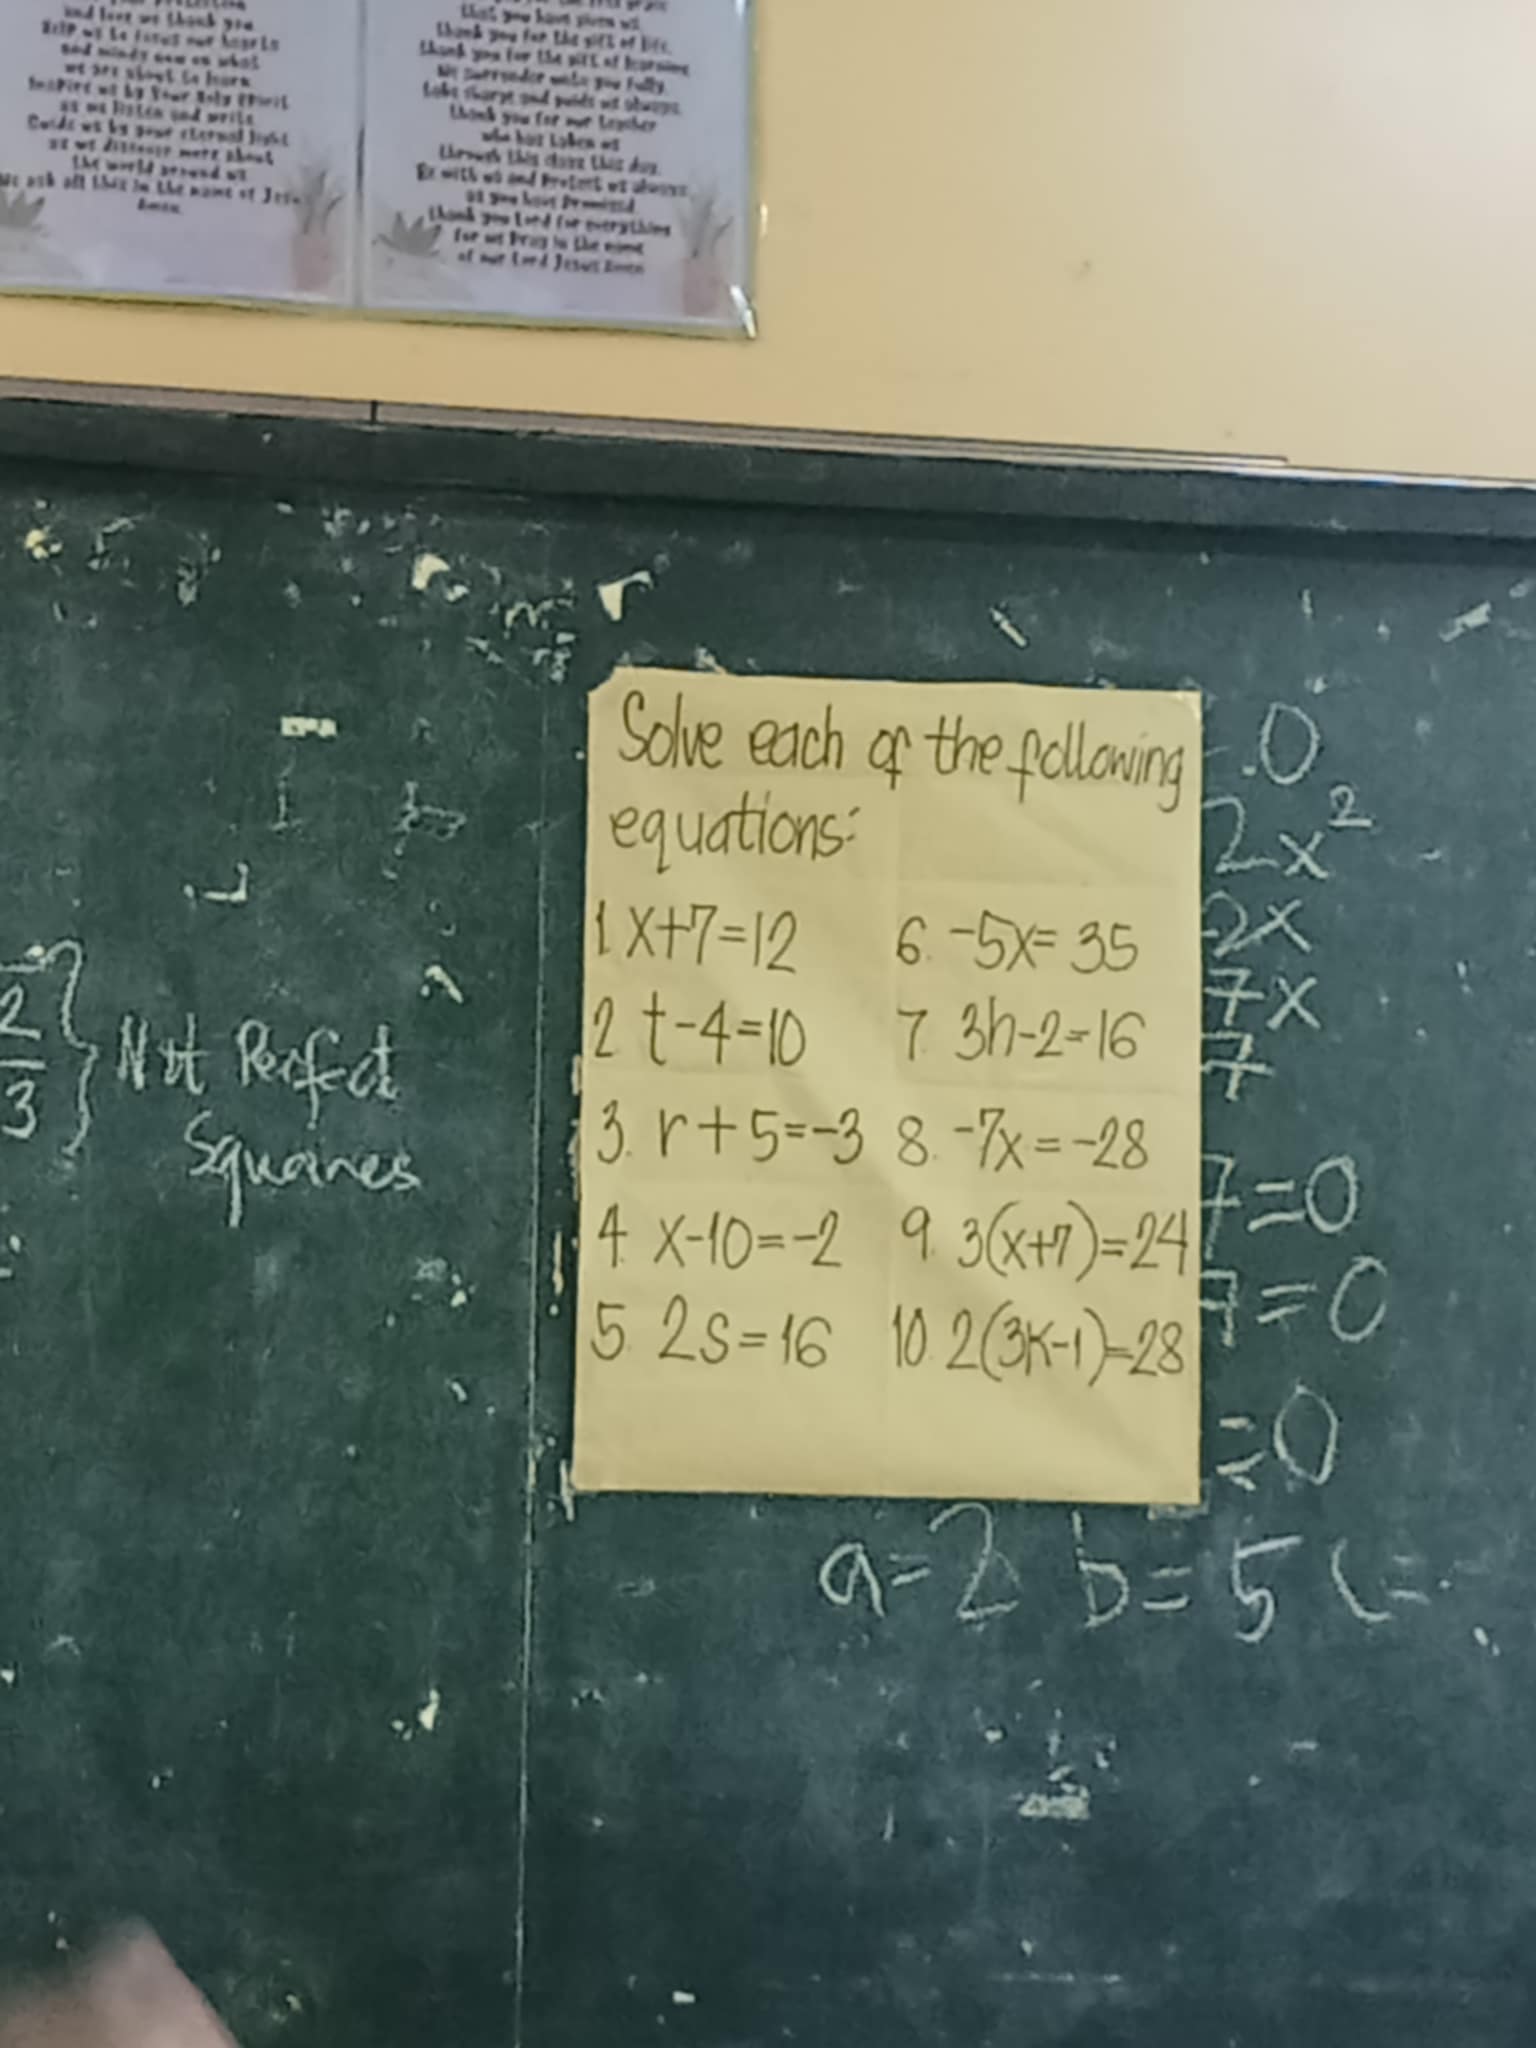 and love we thank you
Help us to focus our hearts
and minds now on what
we are about to learn
Inspire us by Your Holy Spirit
as we listen and write
Guide us by your eternal light
as we discover more about
the world around us
ask all this in the name of
Amen
that you have given us
thank you for the gift of life
thank you for the gift of learning
We surrender unto you fully
take charge and guide us always
thank you for our teacher
who has taken us
through this class this day
Be with us and Protect us always
as you have Promised
thank you Lord for everything
for we Pray in the name
of our Lord Jesus Amen
2
3
Not Perfect
Squares
Solve each of the following
equations:
1. x+7=12
2. t-4=10
3. r+5=-3
4. x-10=-2
5. 2s=16
6. -5x=35
7. 3h-2=16
8. -7x=-28
9. 3(x+7)=24
10. 2(3k-1)=28
0
2x²
2x
7x
7
7=0
7=0
=0
a=2 b=5 c=